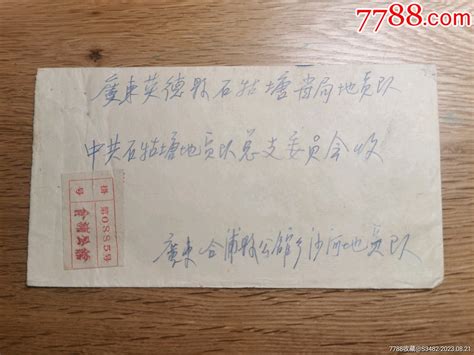 7788.com
廣東英德縣石牯塘省局地質队
中共石牯塘地質队总支委員会收
掛
第0885号
号
廣東合浦縣公館乡沙河地質队
7788收藏@S3482-2023.08.21